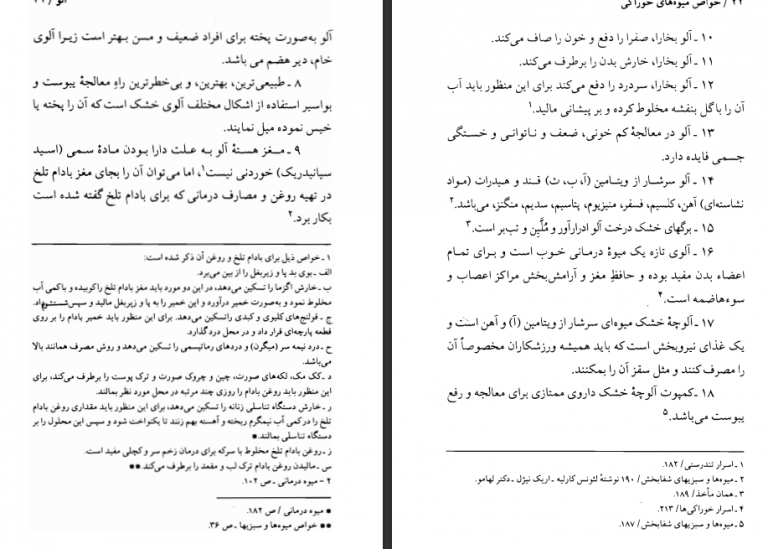 ۲۲ / خواص میوه‌های خوراکی
۱۰ ـ آلو بخارا، صفرا را دفع و خون را صاف می‌کند.
۱۱ ـ آلو بخارا، خارش بدن را برطرف می‌کند.
۱۲ ـ آلو بخارا، سردرد را دفع می‌کند برای این منظور باید آب
آن را با گل بنفشه مخلوط کرده و بر پیشانی مالید.۱
۱۳ ـ آلو در معالجهٔ کم خونی، ضعف و ناتوانی و خستگی
جسمی فایده دارد.
۱۴ ـ آلو سرشار از ویتامین (آ، ب، ث) قند و هیدرات (مواد
نشاسته‌ای) آهن، کلسیم، فسفر، منیزیوم، پتاسیم، سدیم، منگنز، می‌باشد.۲
۱۵ ـ برگهای خشک درخت آلو ادرارآور و مُلَیِّن و تب‌بر است.۳
۱۶ ـ آلوی تازه یک میوهٔ درمانی خوب است و برای تمام
اعضاء بدن مفید بوده و حافظِ مغز و آرامش‌بخش مراکز اعصاب و
سوءهاضمه است.۴
۱۷ ـ آلوچهٔ خشک میوه‌ای سرشار از ویتامین (آ) و آهن است و
یک غذای نیروبخش است که باید همیشه ورزشکاران مخصوصاً آن
را مصرف کنند و مثل سقز آن را بمکنند.
۱۸ ـ کمپوت آلوچهٔ خشک داروی ممتازی برای معالجه و رفع
یبوست می‌باشد.۵
۱ ـ اسرار تندرستی / ۱۸۲.
۲ ـ میوه‌ها و سبزیهای شفابخش / ۱۹۰ نوشتهٔ لئونس کارلیه ـ اریک نیژل ـ دکتر لهامو.
۳ ـ همان مأخذ / ۱۸۹.
۴ ـ اسرار خوراکی‌ها / ۲۱۳.
۵ ـ میوه‌ها و سبزیهای شفابخش / ۱۸۷.
آلو /
آلو به‌صورت پخته برای افراد ضعیف و مسن بهتر است زیرا آلوی
خام، دیر هضم می باشد.
۸ ـ طبیعی‌ترین، بهترین، و بی‌خطرترین راهِ معالجهٔ یبوست و
بواسیر استفاده از اشکال مختلف آلوی خشک است که آن را پخته یا
خیس نموده میل نمایند.
۹ ـ مـغز هستهٔ آلو بـه عـلت دارا بودن مـادهٔ سـمی (اسید
سیانیدریک) خوردنی نیست۱، اما می‌توان آن را بجای مغز بادام تلخ
در تهیه روغن و مصارف درمانی که برای بادام تلخ گفته شده است
بکار برد.۲
۱ ـ خواص ذیل برای بادام تلخ و روغن آن ذکر شده است:
الف ـ بوی بد پا و زیربغل را از بین می‌برد.
ب ـ خارش اگزما را تسکین می‌دهد، در این دو مورد باید مغز بادام تلخ را کوبیده و با کمی آب
مخلوط نمود و به‌صورت خمیر درآورد و این خمیر را به پا و زیربغل مالید و سپس
ج ـ قولنج‌های کلیوی و کبدی را تسکین می‌دهد. برای این منظور باید خمیر بادام را بر روی
قطعه پارچه‌ای قرار داد و در محل درد گذارد.
ح ـ درد نیمه سر (میگرن) و دردهای رماتیسمی را تسکین می‌دهد و روش مصرف همانند بالا
می‌باشد.
د ـ کک مک، لکه‌های صورت، چین و چروک صورت و ترک پوست را برطرف می‌کند، برای
این منظور باید روغن بادام را روزی چند مرتبه در محل مورد نظر بمالند.
ر ـ خارش دستگاه تناسلی زنانه را تسکین می‌دهد، برای این منظور باید مقداری روغن بادام
تلخ را در کمی آب نیمگرم ریخته و آهسته بهم زنند تا یکنواخت شود و سپس این محلول را بر
دستگاه تناسلی بمالند.*
ز ـ روغن بادام تلخ مخلوط با سرکه برای درمان زخم سر و کچلی مفید است.
س ـ مالیدن روغن بادام ترک لب و مقعد را برطرف می‌کند.**
۲ ـ میوه درمانی ـ ص ۱۰۲.
* میوه درمانی / ص ۱۸۲.
** خواص میوه‌ها و سبزیها ـ ص ۳۶.